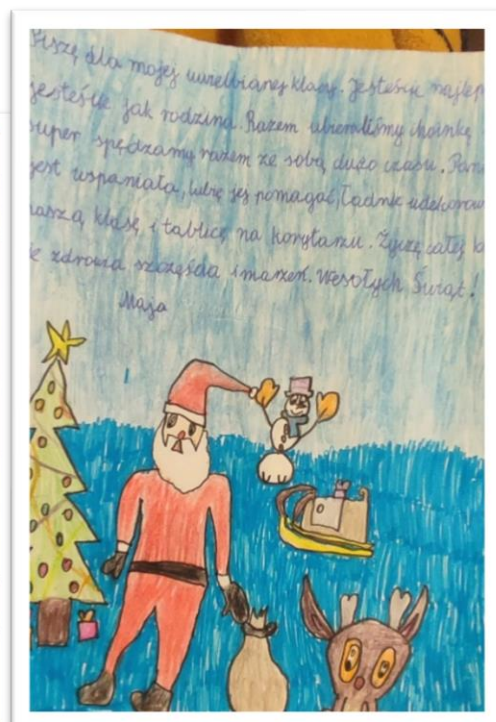 Piszę dla mojej uwielbianej klasy. Jesteście najlep
jesteście jak rodzina. Razem ubieraliśmy choinkę
super spędzamy razem ze sobą dużo czasu. Pani
jest wspaniała, lubię jej pomagać, Ładnie udekorow
naszą klasę, i tablicę na korytarzu. Życzę całej k
zdrowia szczęścia i marzeń. Wesołych Świąt!
Maja